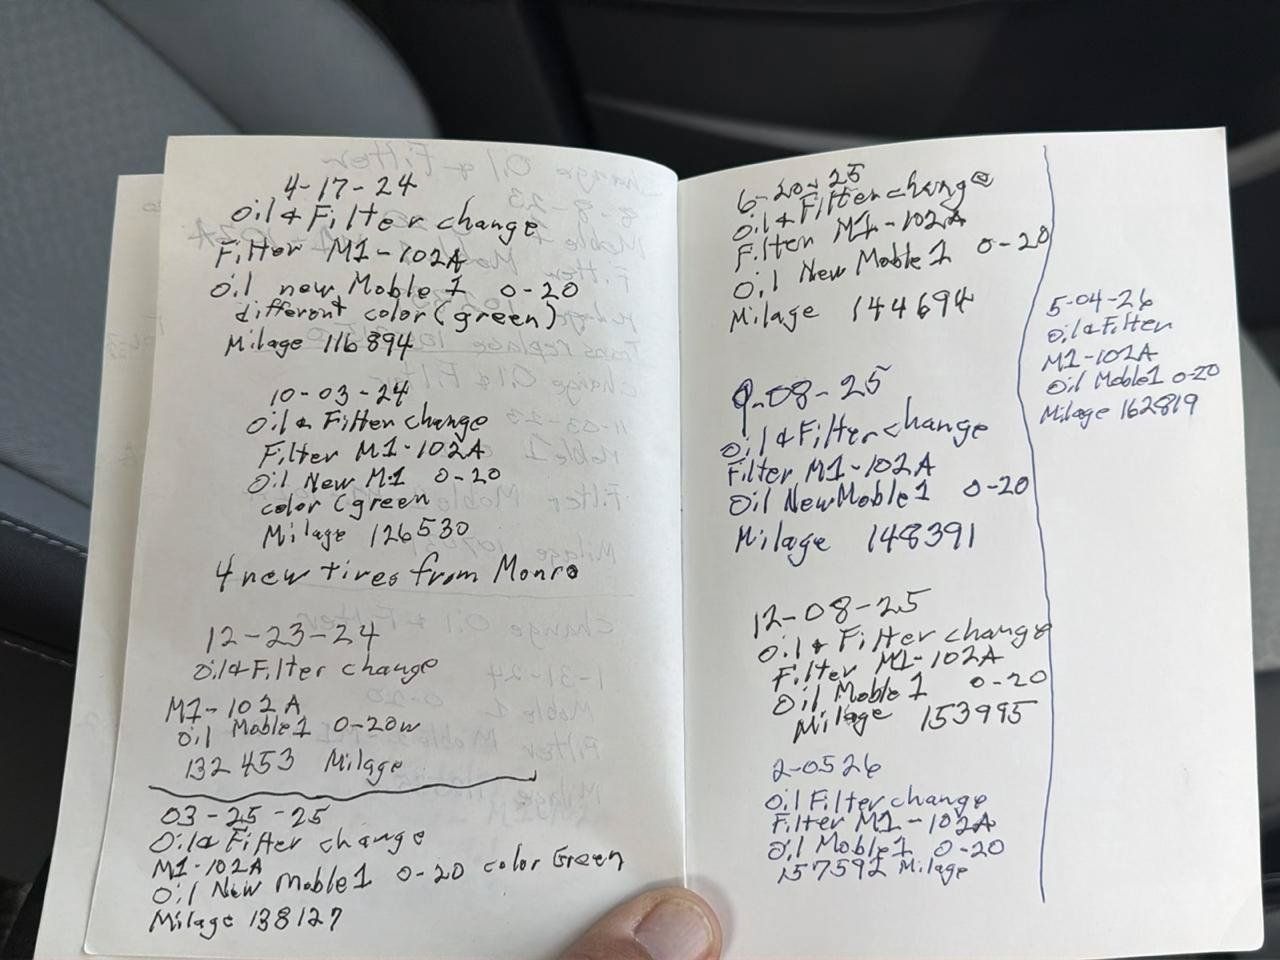 4-17-24
Oil & Filter change
Filter M1-102A
Oil new Moble 1 0-20
different color (green)
Milage 116894
10-03-24
Oil & Filter change
Filter M1-102A
Oil New M1 0-20
color (green
Milage 126530
4 new tires from Monro
12-23-24
Oil & Filter change
M1-102A
Oil Moble 1 0-20w
132453 Milage
03-25-25
Oil & Filter change
M1-102A
Oil New Moble 1 0-20 color Green
Milage 138127
6-20-25
Oil & Filter change
Filter M1-102A
Oil New Moble 1 0-20
Milage 144694
9-08-25
Oil & Filter change
Filter M1-102A
Oil New Moble 1 0-20
Milage 148391
12-08-25
Oil & Filter change
Filter M1-102A
Oil Moble 1 0-20
Milage 153995
2-0526
Oil Filter change
Filter M1-102A
Oil Moble 1 0-20
157592 Milage
5-04-26
Oil & Filter
M1-102A
Oil Moble 1 0-20
Milage 162819